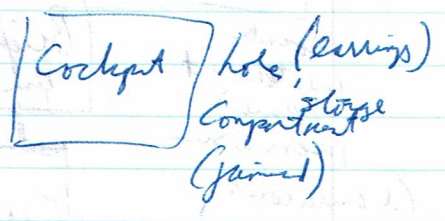 Cockpit hole, (earrings)
storge
Compartment
(jained)